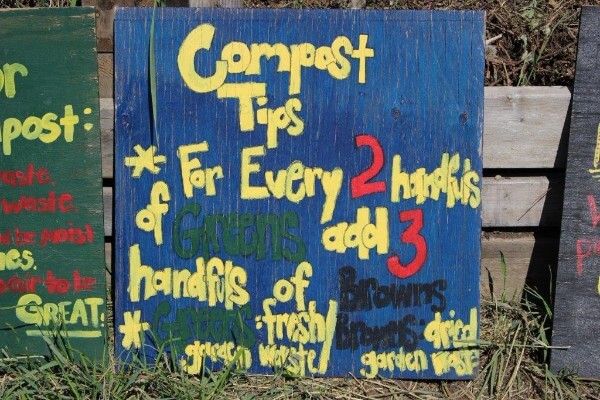 or
post:
waste.
waste.
GREAT.
Compost
Tips
* For Every 2 handfuls
of Greens add 3
handfuls of Browns
* Greens: fresh/ Browns: dried
garden waste/ garden waste